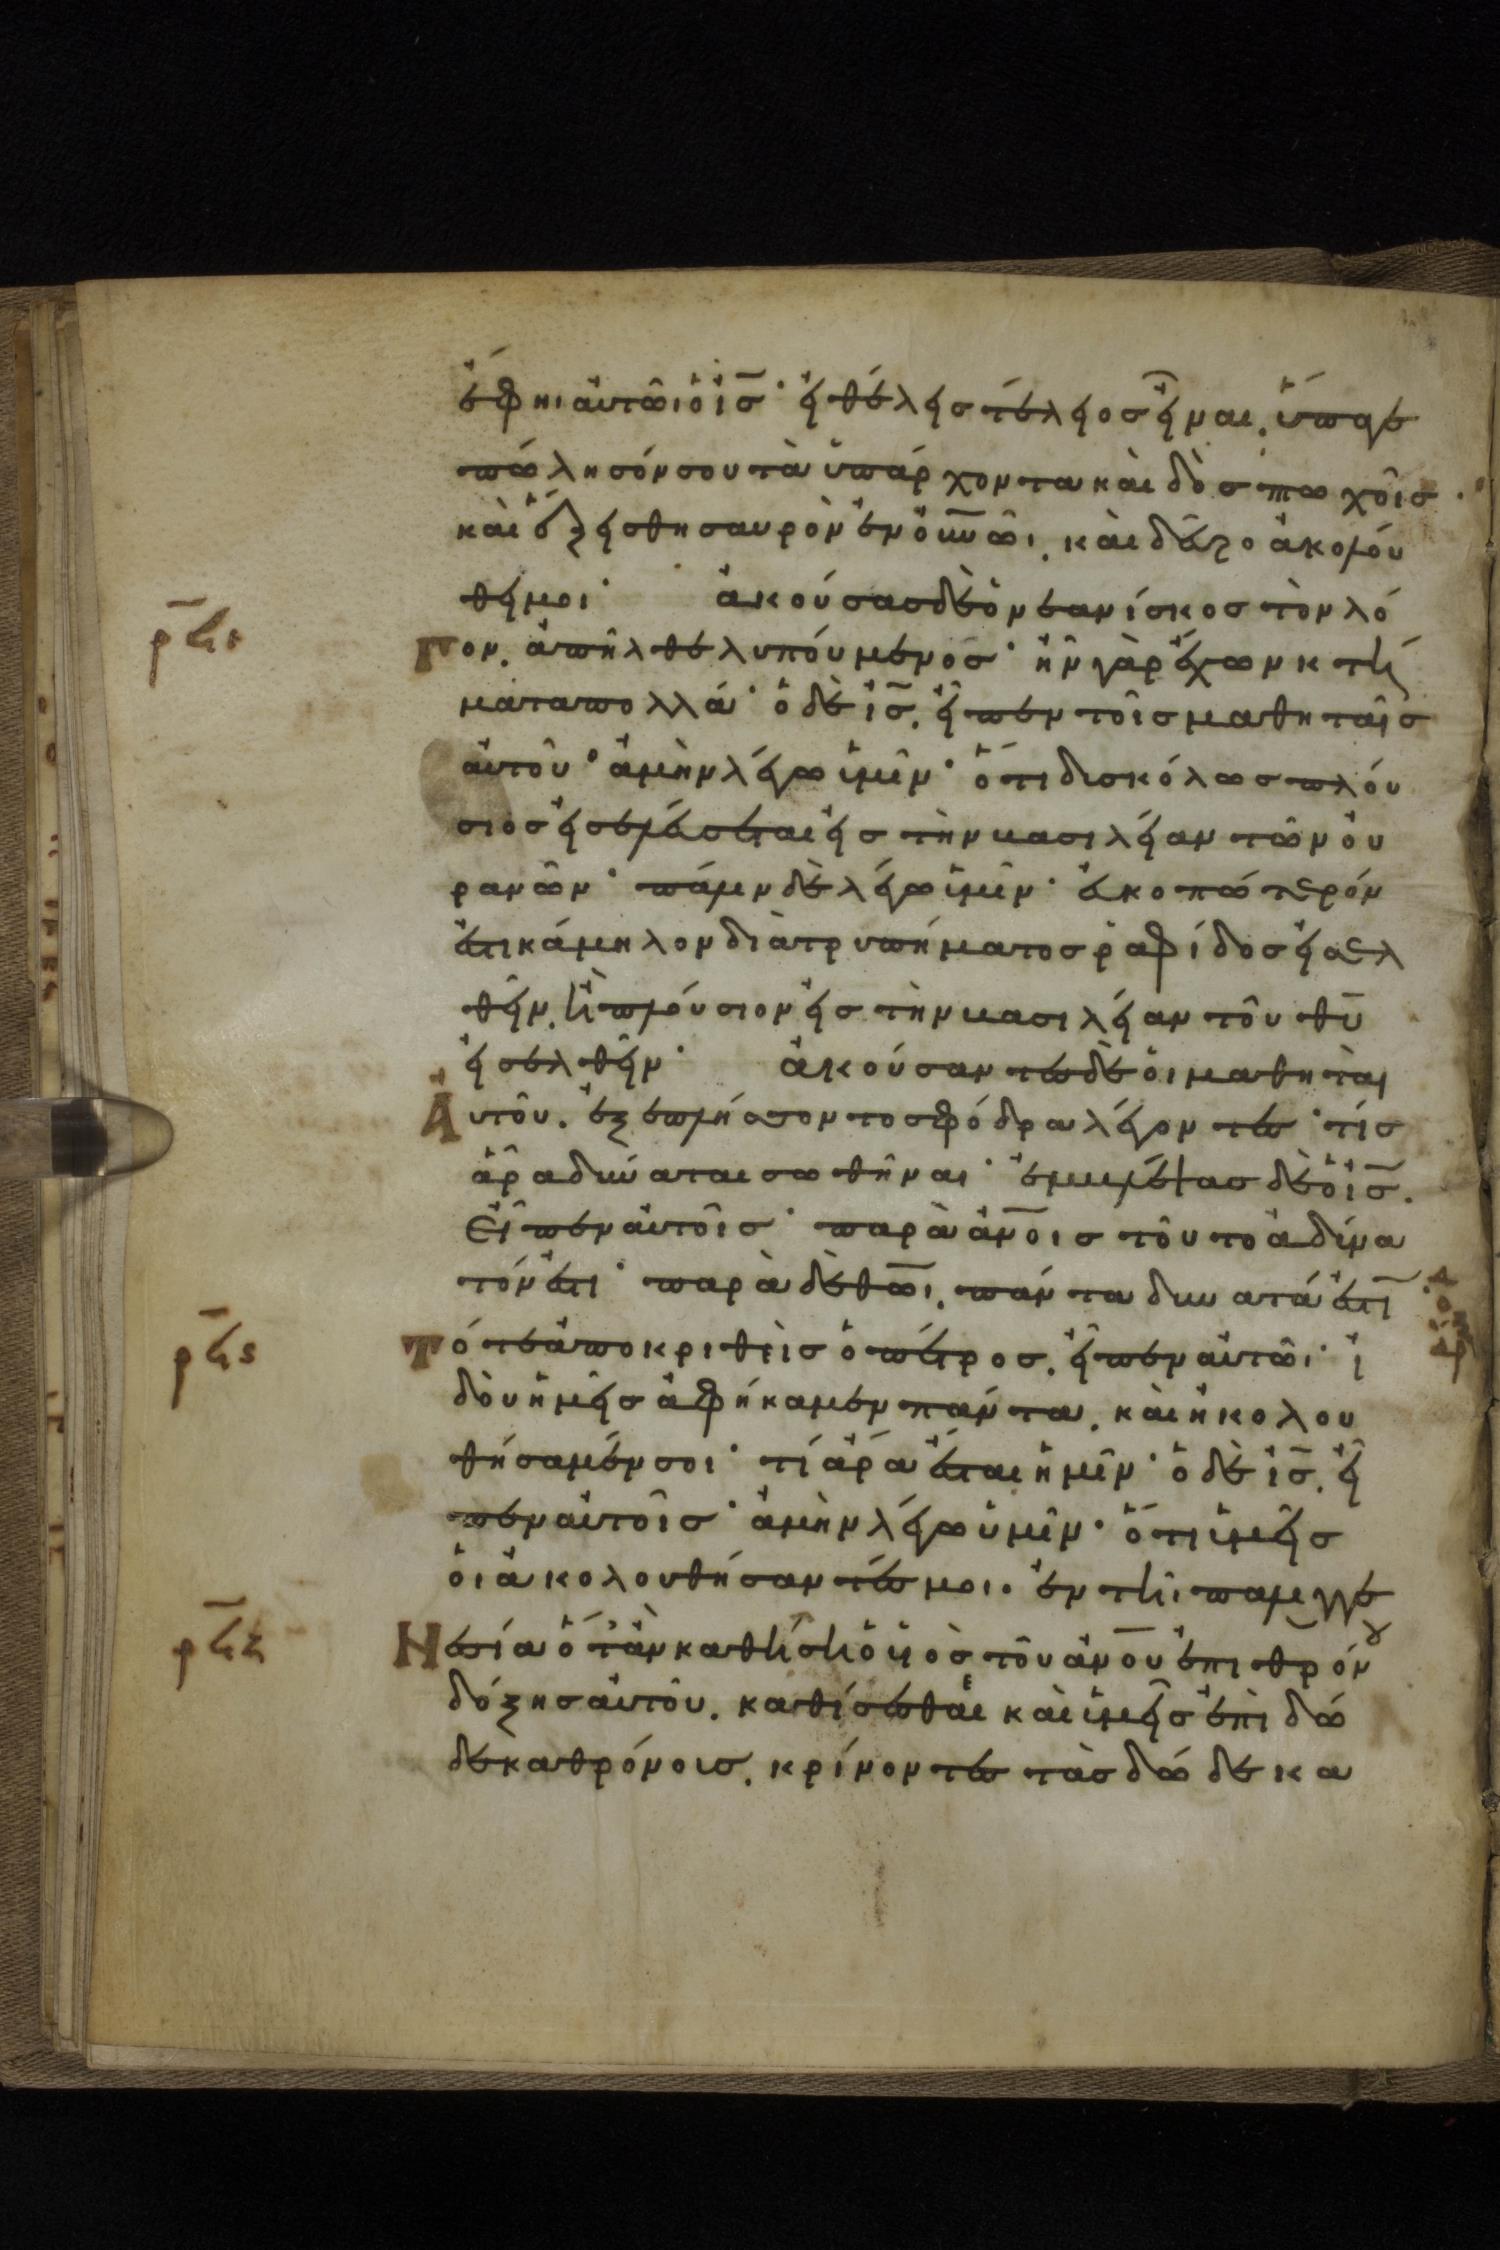 ἔφη αὐτῶι ὁ ἰσ̅· εἰ θέλεις τέλειος εἶναι. ὕπαγε
πώλησόν σου τὰ ὑπάρχοντα καὶ δὸς πτωχοῖς·
καὶ ἕξεις θησαυρὸν ἐν οὐνῶι. καὶ δεῦρο ἀκολού
θει μοι· ἀκούσας δὲ ὁ νεανίσκος τὸν λό
γον. ἀπῆλθε λυπούμενος· ἦν γὰρ ἔχων κτή
ματα πολλά· ὁ δὲ ἰσ̅. εἶπεν τοῖς μαθηταῖς
αὐτοῦ· ἀμὴν λέγω ὑμῖν· ὅτι δισκόλως πλού
σιος εἰσελεύσεται εἰς τὴν βασιλείαν τῶν οὐ
ρανῶν· πάλιν δὲ λέγω ὑμῖν· εὐκοπώτερόν
ἐστι κάμηλον διὰ τρυπήματος ῥαφίδος εἰσελ
θεῖν. ἢ πλούσιον εἰς τὴν βασιλείαν τοῦ θυ̅
εἰσελθεῖν· ἀκούσαντες δὲ οἱ μαθηταὶ
αὐτοῦ. ἐξεπλήσσοντο σφόδρα λέγοντες· τίς
ἄρα δύναται σωθῆναι· ἐμβλέψας δὲ ὁ ἰσ̅.
εἶπεν αὐτοῖς· παρὰ ἀνοις τοῦτο ἀδύνα
τόν ἐστι· παρὰ δὲ θῶι. πάντα δυνατά ἐστι
ρϟε
τότε ἀποκριθεὶς ὁ πέτρος. εἶπεν αὐτῶι· ἰ
δοὺ ἡμεῖς ἀφήκαμεν πάντα. καὶ ἠκολου
θήσαμέν σοι· τί ἄρα ἔσται ἡμῖν· ὁ δὲ ἰσ̅. εἶ
πεν αὐτοῖς· ἀμὴν λέγω ὑμῖν· ὅτι ὑμεῖς
οἱ ἀκολουθήσαντές μοι. ἐν τῆι παλιγγε
νεσία ὅταν καθήσῃ ὁ υἱὸς τοῦ ἀνου ἐπι θρόνου
δόξης αὐτοῦ. καθίσεσθαι καὶ ὑμεῖς ἐπὶ δώ
δεκα θρόνοις. κρίνοντες τὰς δώδεκα
ρϟς
ρϟζ